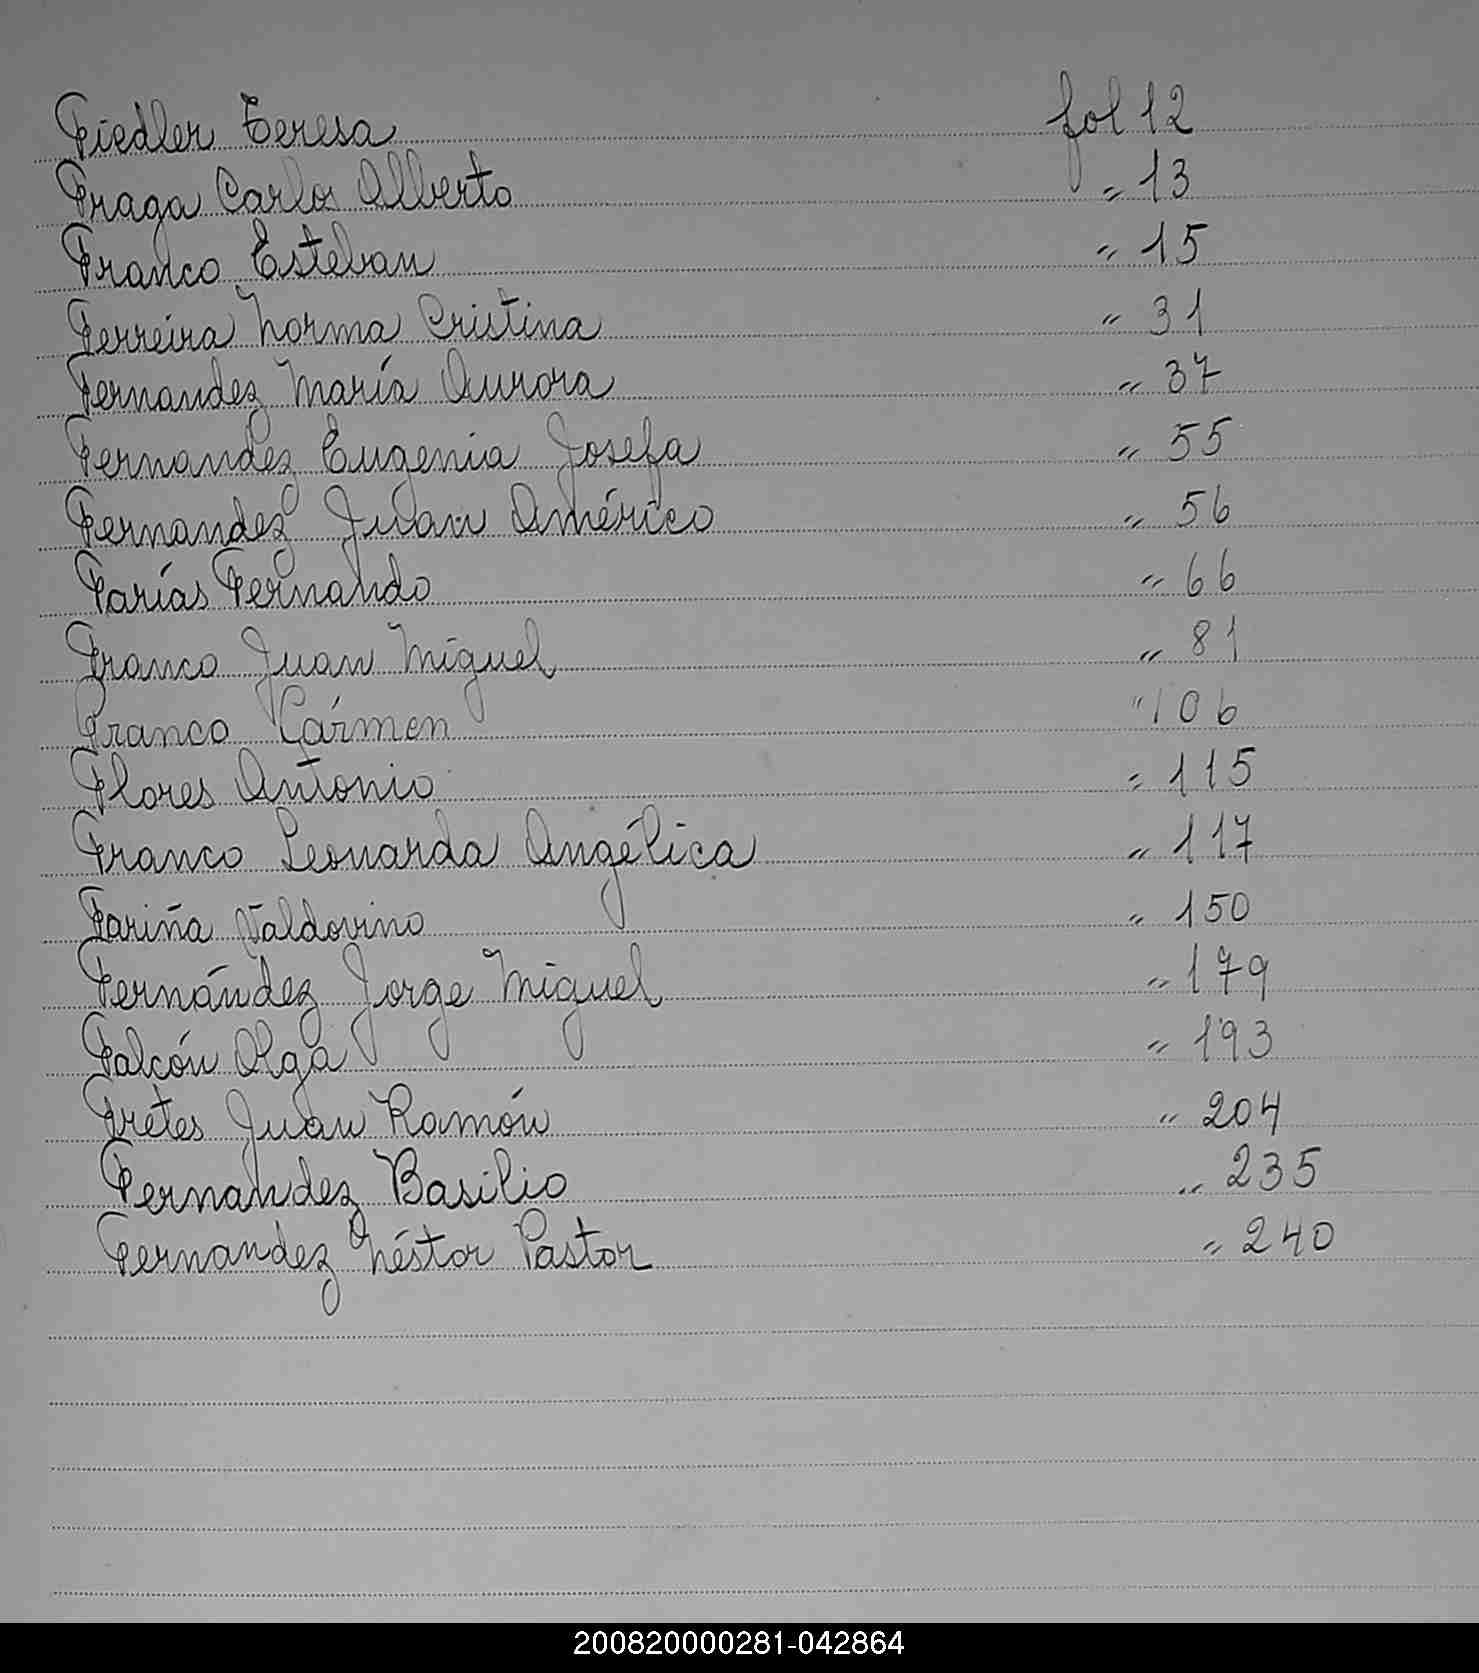 Fiedler Teresa fol 12
Fraga Carlos Alberto " 13
Franco Esteban " 15
Ferreira Norma Cristina " 31
Fernandez María Aurora " 37
Fernandez Eugenia Josefa " 55
Fernandez Juan Américo " 56
Farías Fernando " 66
Franco Juan Miguel " 81
Franco Cármen " 106
Flores Antonio " 115
Franco Leonarda Angélica " 117
Fariña Valdovino " 150
Fernández Jorge Miguel " 179
Falcón Olga " 193
Fretes Juan Ramón " 204
Fernandez Basilio " 235
Fernandez Néstor Pastor " 240
200820000281-042864